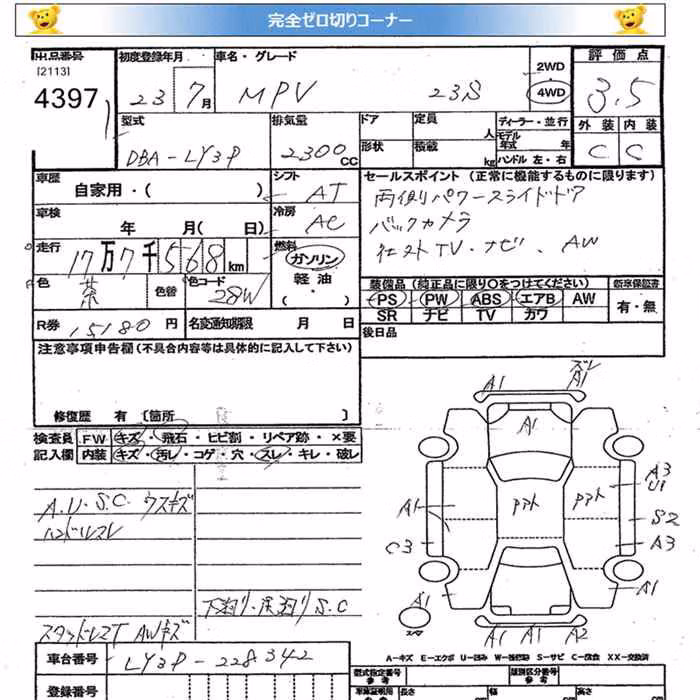 完全ゼロ切りコーナー
出品番号 初度登録年月 車名・グレード 2WD 評価点
[2113]
4397 23 7月 MPV 23S 4WD 3.5
型式 排気量 ドア 定員 人 ディーラー・並行 外装 内装
モデル年式 年
DBA-LY3P 2300CC 形状 積載 kg ハンドル 左・右 C C
車歴 シフト セールスポイント (正常に機能するものに限ります)
自家用・( ) AT 両側パワースライドドア
車検 冷房 バックカメラ
年 月( 日) AC 社外TV・ナビ、AW
走行 燃料
17万7千568km ガソリン
色 色替 色コード 軽油 装備品 (純正品に限り○をつけてください) 新車保証書
茶 28W ・( ) PS PW ABS エアB AW 有・無
SR ナビ TV カワ
R券 15180円 名変通知期限 月 日 後日品
注意事項申告欄(不具合内容等は具体的に記入して下さい)
修復歴 有 〔箇所 〕
検査員 FW キズ・飛石・ヒビ割・リペア跡・×要
記入欄 内装 キズ・汚レ・コゲ・穴・スレ・キレ・破レ
A.U.S.C ウスキズ
ハンドルスレ
下廻り・床廻りS.C
スタッドレスT AWキズ
A1 ズレ A1
A1
A3
U1
A1 S2
C3 A3
A1 A1
スペア
A1 A1 A2
A-キズ E-エクボ U-凹み S-サビ C-腐食 XX-交換済
車台番号 LY3P-228342
登録番号
型式指定番号 参考 類別区分番号 参考
車庫証明用 参考 長さ cm 幅 cm 高さ cm